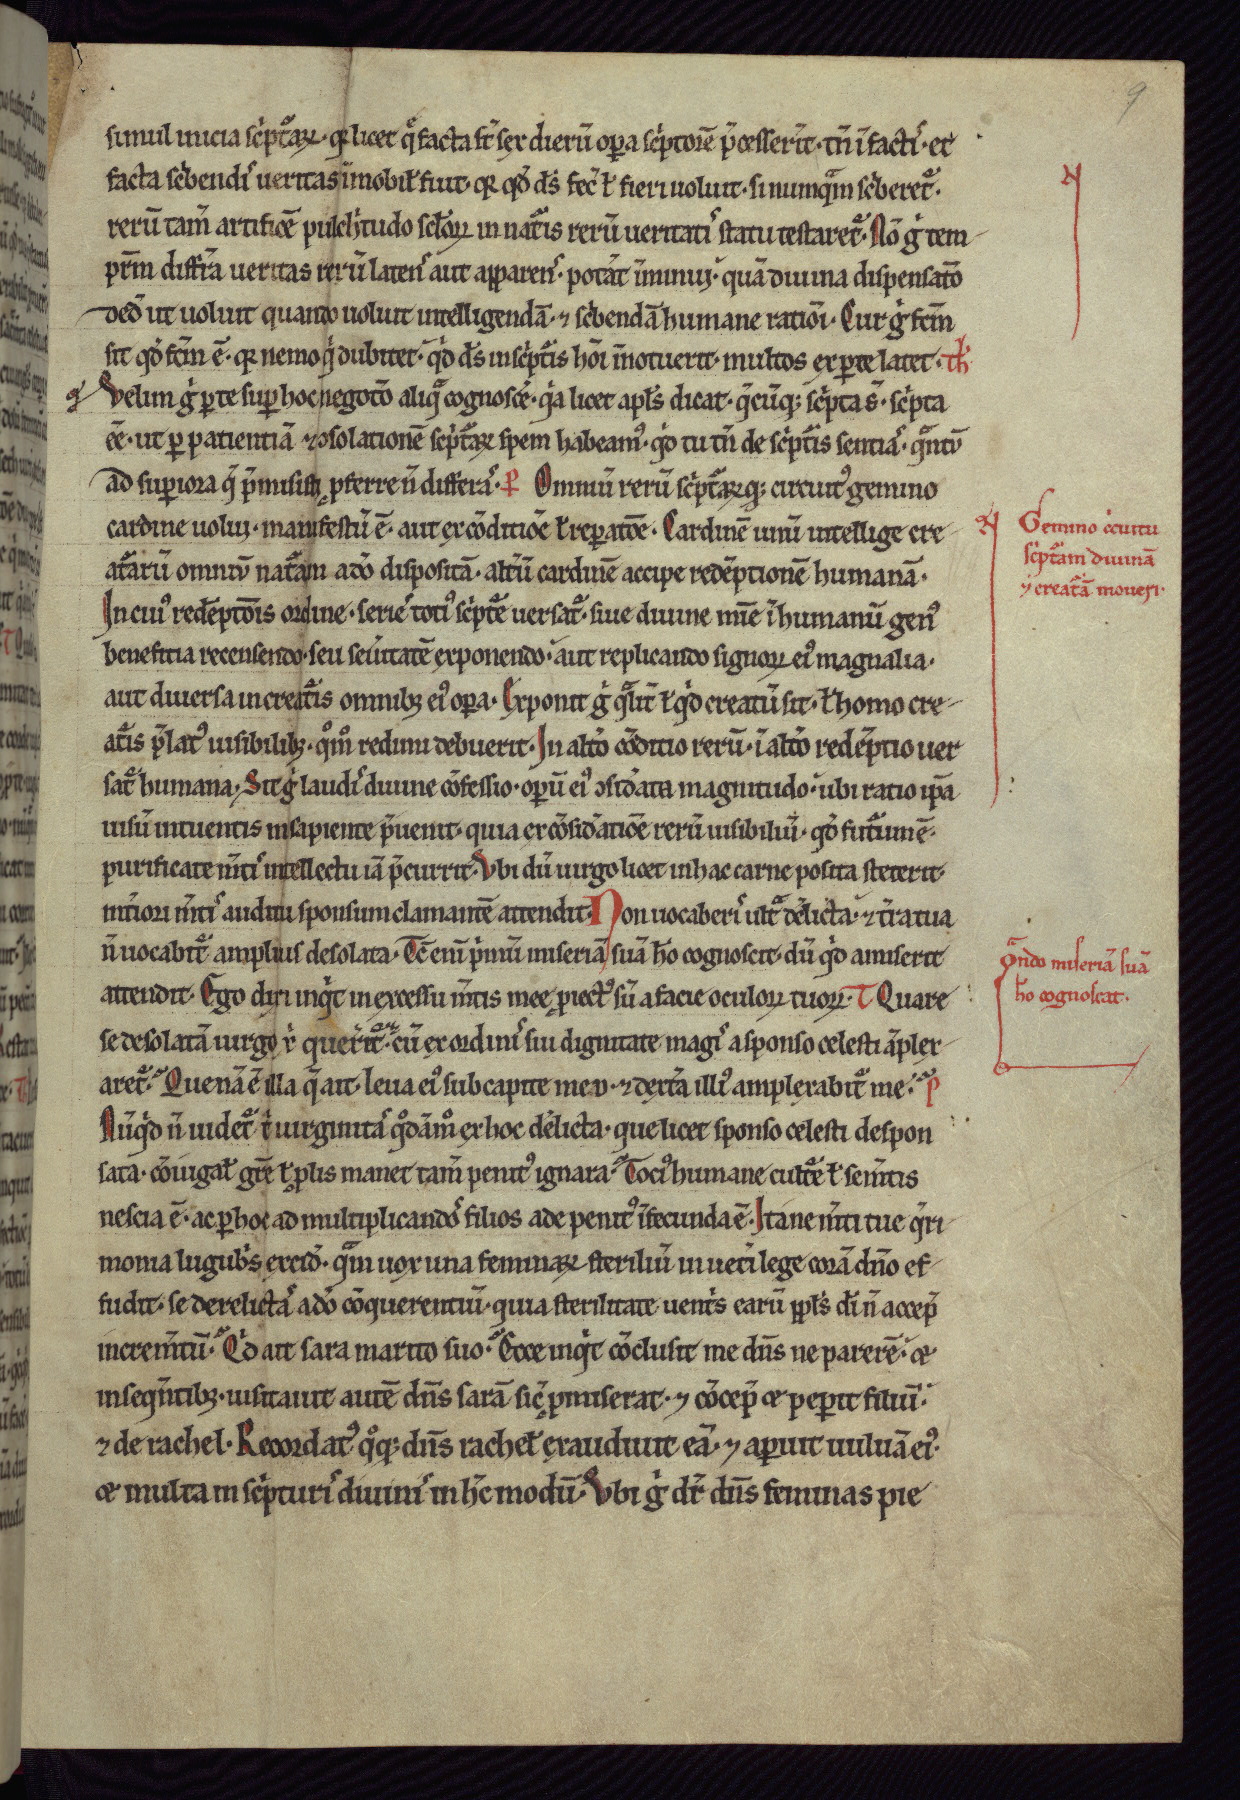 9
simul inicia sc̄ptᵃrꝝ · qꝛ licet qᵈ facta st̄ sex dierū oꝑa sc̄ptorē p̄cesserīt · tn̄ ī factꝭ · et
facta sc̄bendi ueritas īmobił fuit · qꝛ qd̄ ds̄ fec̄ ł fieri uoluit · si nunqᵃm sc̄beret᷑ ·
rerū tam̄ artificē pulch̄tudo sc̄loꝝ in natᵃis rerū ueritatꝭ statu testaret᷑ · Nō gͥ tem
pr̄m diffr̄a ueritas rerū latenˢ aut apparenˢ · potāt īminuꝫ · quā diuina dispensatō
deō ut uoluit quando uoluit intelligendā · ⁊ sc̄bendā humane ratiōi · Cur gͥ fcm̄
sit qd̄ fcm̄ ē · qꝛ nemo qͥ dubitet · qd̄ ds̄ in sc̄ptᵃis hōi īnotuerit · multos ex ꝑte latet · th̄
Velim gͥ ꝑ te suꝑ hoc negotō aliqᵃ cognoscē · qͥa licet apłs dicat · q̄cūqꝫ sc̄pta s̄ · sc̄pta
ēē · ut ꝑ patientiā ⁊ ꝯsolationē sc̄ptᵃrꝝ spem habeamꝰ · qͥd tu tn̄ de sc̄ptᵃis sentiaˢ · qᵃntū
ad suꝑiora q̄ p̄misisti ꝓferre n̄ differaˢ · P Omniū rerū sc̄ptᵃrꝝqꝫ circuitꝰ gemino
cardine uoluiꝫ · manifestū ē · aut ex cōditiōe ł reꝑatōe · Cardinē unū intellige cre
atᵃrū omniū natᵃm adō dispositā · altū cardinē accipe redēptionē humanā ·
In cuiꝰ redēptōis ordine · serieˢ totiꝰ sc̄pte uersat᷑ · siue diuine mīe ī humanū genꝰ
beneficia recensendo · seu seūitatē exponendo · aut replicando signoꝝ eiꝰ magnalia ·
aut diuersa in creatᵃis omnibꝫ eiꝰ oꝑa · Exponit gͥ qᵃlit̄ ł qͥd creatū sit · ł homo cre
atᵃis p̄latꝰ uisibilibꝫ · qᵒmͦ redimi debuerit · In altō cōditio rerū · ī altō redēptio uer
sat᷑ humana · Sit gͥ laudiˢ diuine cōfessio · operū eiꝰ ꝯsid̄ata magnitudo · ubi ratio ip̄a
uisū intuentis insapiente p̄uenit · quia ex cōsid̄atiōe rerū uisibiliū · qd̄ futᵃum ē ·
purificate mn̄tiˢ intellectu iā p̄currit · Vbi dū uirgo licet in hac carne posita steterit
int̄iori mn̄tiˢ auditu sponsum clamantē attendit · Non uocaberiˢ ultᵃ dēlicta · ⁊ tr̄a tua
n̄ uocabit᷑ amplius desolata · Tc̄ eni pͥmū miseriā suā hō cognoscit · dū qͥd amiserit
attendit · Ego dixi inqͥt in excessu mn̄tis mee ꝓiectꝰ sū a facie oculoꝝ tuoꝝ · T Quare
se desolatā uirgo ł queriꝉ · cū ex ordiniˢ sui dignitate magiˢ a sponso celesti āplex
aret᷑ · Que nā ē illa q̄ ait · leua eiꝰ sub capite meo · ⁊ dext̄a illiꝰ amplexabit᷑ me · P
Nūqͥd n̄ uidet᷑ ł uirginitaˢ qᵒdāmͦ ex hoc dēlicta · que licet sponso celesti despon
sata · cōiugał grē ł ꝓlis manet tam̄ penitꝰ ignara · Tociꝰ humane cultᵉe ł semn̄tis
nescia ē · ac ꝑ hoc ad multiplicandoˢ filios ade penitꝰ īfecunda ē · Itane mn̄ti tue qͥri
monia lugubr̄s excid̄ · qᵃm uox una feminaꝝ steriliū in uet̄i lege corā dn̄o ef
fudit · se derelictaˢ adō cōquerentiū · quia sterilitate uentr̄s earū ppłs di n̄ accep̄
incremn̄tū · Qͥd ait sara marito suo · Ecce inqͥt cōclusit me dn̄s ne parerē · ⁊
in seqn̄tibꝫ · uisitauit autē dn̄s sarā sic̄ ꝓmiserat · ⁊ cōcep̄ ⁊ peꝑit filiū ·
⁊ de rachel · Recordatꝰ qᵒqꝫ dn̄s racheł exaudiuit eā · ⁊ aperuit uuluā eiꝰ ·
⁊ multa in sc̄pturiˢ diuiniˢ in hc̄ modū · Vbi gͥ dr̄ dn̄s feminas pie
N
N Gemino c̄cuitu
sc̄ptᵃam diuinā
⁊ creatᵃā moueri ·
Qᵃndo miseriā suā
hō cognoscat ·